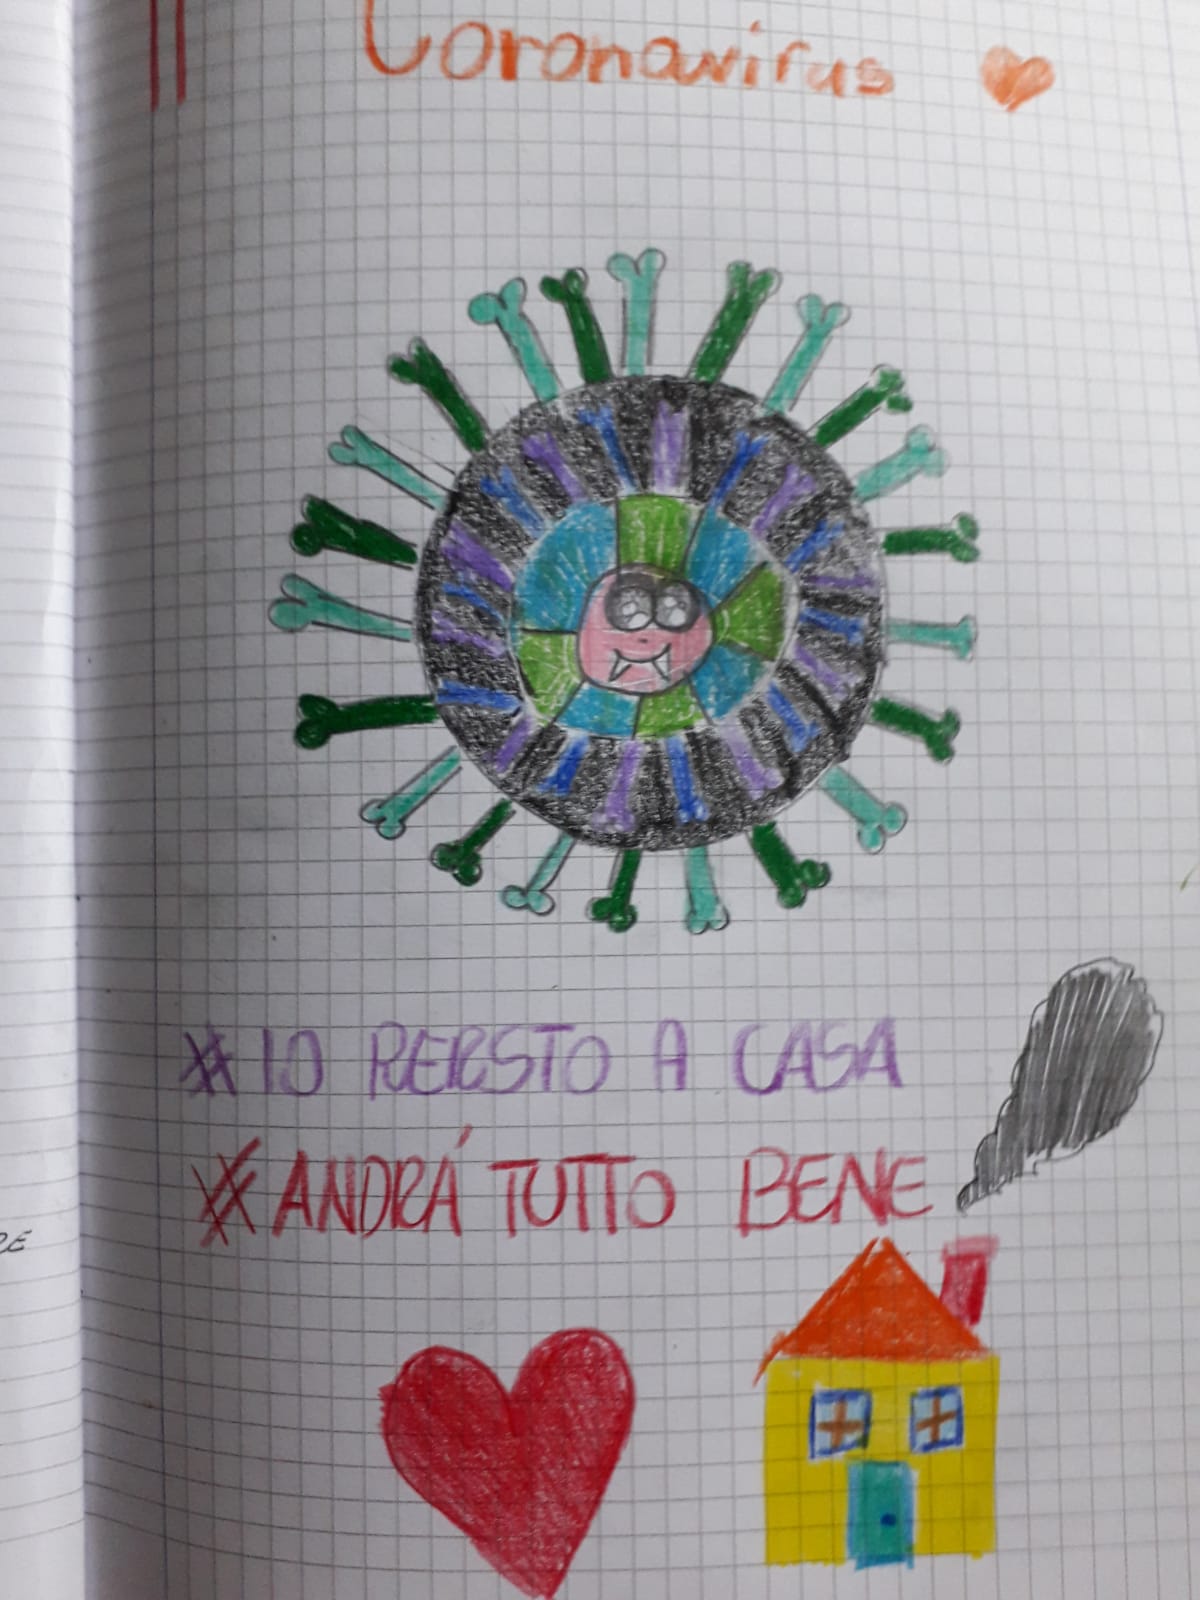 Coronavirus
# IO RERSTO A CASA
# ANDRÁ TUTTO BENE
RE